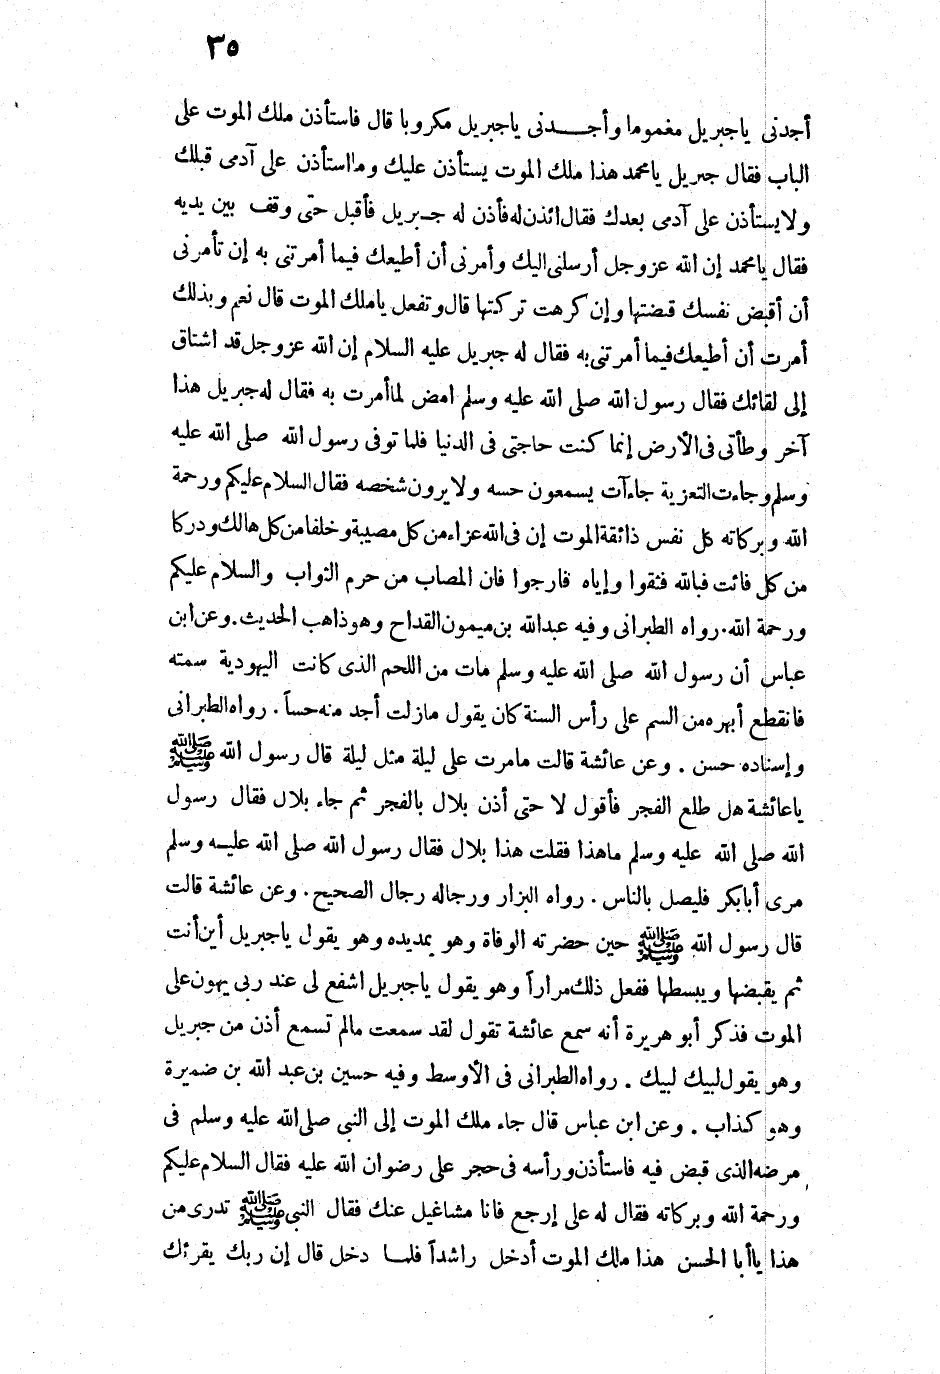 ٣٥
أجدنى ياجبريل مغموما وأجـدنى ياجبريل مكروبا قال فاستأذن ملك الموت على
الباب فقال جبريل يامحمد هذا ملك الموت يستأذن عليك وما استأذن على آدمى قبلك
ولا يستأذن على آدمى بعدك فقال ائذن له فأذن له جبريل فأقبل حتى وقف بين يديه
فقال يامحمد إن الله عزوجل أرسلنى اليك وأمرنى أن أطيعك فيما أمرتنى به إن تأمرنى
أن أقبض نفسك قبضتها وإن كرهت تركتها قال وتفعل ياملك الموت قال نعم وبذلك
أمرت أن أطيعك فيما أمرتنى به فقال له جبريل عليه السلام إن الله عزوجل قد اشتاق
إلى لقائك فقال رسول الله صلى الله عليه وسلم امض لما أمرت به فقال له جبريل هذا
آخر وطأتى فى الأرض إنما كنت حاجتى فى الدنيا فلما توفى رسول الله صلى الله عليه
وسلم وجاءت التعزية جاء آت يسمعون حسه ولا يرون شخصه فقال السلام عليكم ورحمة
الله وبركاته كل نفس ذائقة الموت إن فى الله عزاء من كل مصيبة وخلفا من كل هالك ودركا
من كل فائت فبالله فثقوا وإياه فارجوا فان المصاب من حرم الثواب والسلام عليكم
ورحمة الله. رواه الطبرانى وفيه عبدالله بن ميمون القداح وهو ذاهب الحديث. وعن ابن
عباس أن رسول الله صلى الله عليه وسلم مات من اللحم الذى كانت اليهودية سمته
فانقطع أبهره من السم على رأس السنة كان يقول مازلت أجد منه حساً. رواه الطبرانى
وإسناده حسن. وعن عائشة قالت مامرت على ليلة مثل ليلة قال رسول الله ﷺ
ياعائشة هل طلع الفجر فأقول لا حتى أذن بلال بالفجر ثم جاء بلال فقال رسول
الله صلى الله عليه وسلم ماهذا فقلت هذا بلال فقال رسول الله صلى الله عليـه وسلم
مرى أبابكر فليصل بالناس. رواه البزار ورجاله رجال الصحيح. وعن عائشة قالت
قال رسول الله ﷺ حين حضرته الوفاة وهو يمديده وهو يقول ياجبريل أين أنت
ثم يقبضها ويبسطها ففعل ذلك مراراً وهو يقول ياجبريل اشفع لى عند ربى يهون على
الموت فذكر أبو هريرة أنه سمع عائشة تقول لقد سمعت مالم تسمع أذن من جبريل
وهو يقول لبيك لبيك. رواه الطبرانى فى الأوسط وفيه حسين بن عبد الله بن ضميرة
وهو كذاب. وعن ابن عباس قال جاء ملك الموت إلى النبى صلى الله عليه وسلم فى
مرضه الذى قبض فيه فاستأذن ورأسه فى حجر على رضوان الله عليه فقال السلام عليكم
ورحمة الله وبركاته فقال له على إرجع فانا مشاغيل عنك فقال النبى ﷺ تدرى من
هذا ياأبا الحسن هذا ملك الموت أدخل راشداً فلمـا دخل قال إن ربك يقرئك